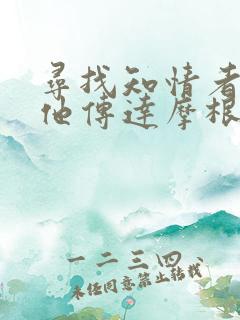 尋找知情者
他傳達摩根
一二三四、
未经同意禁止转载